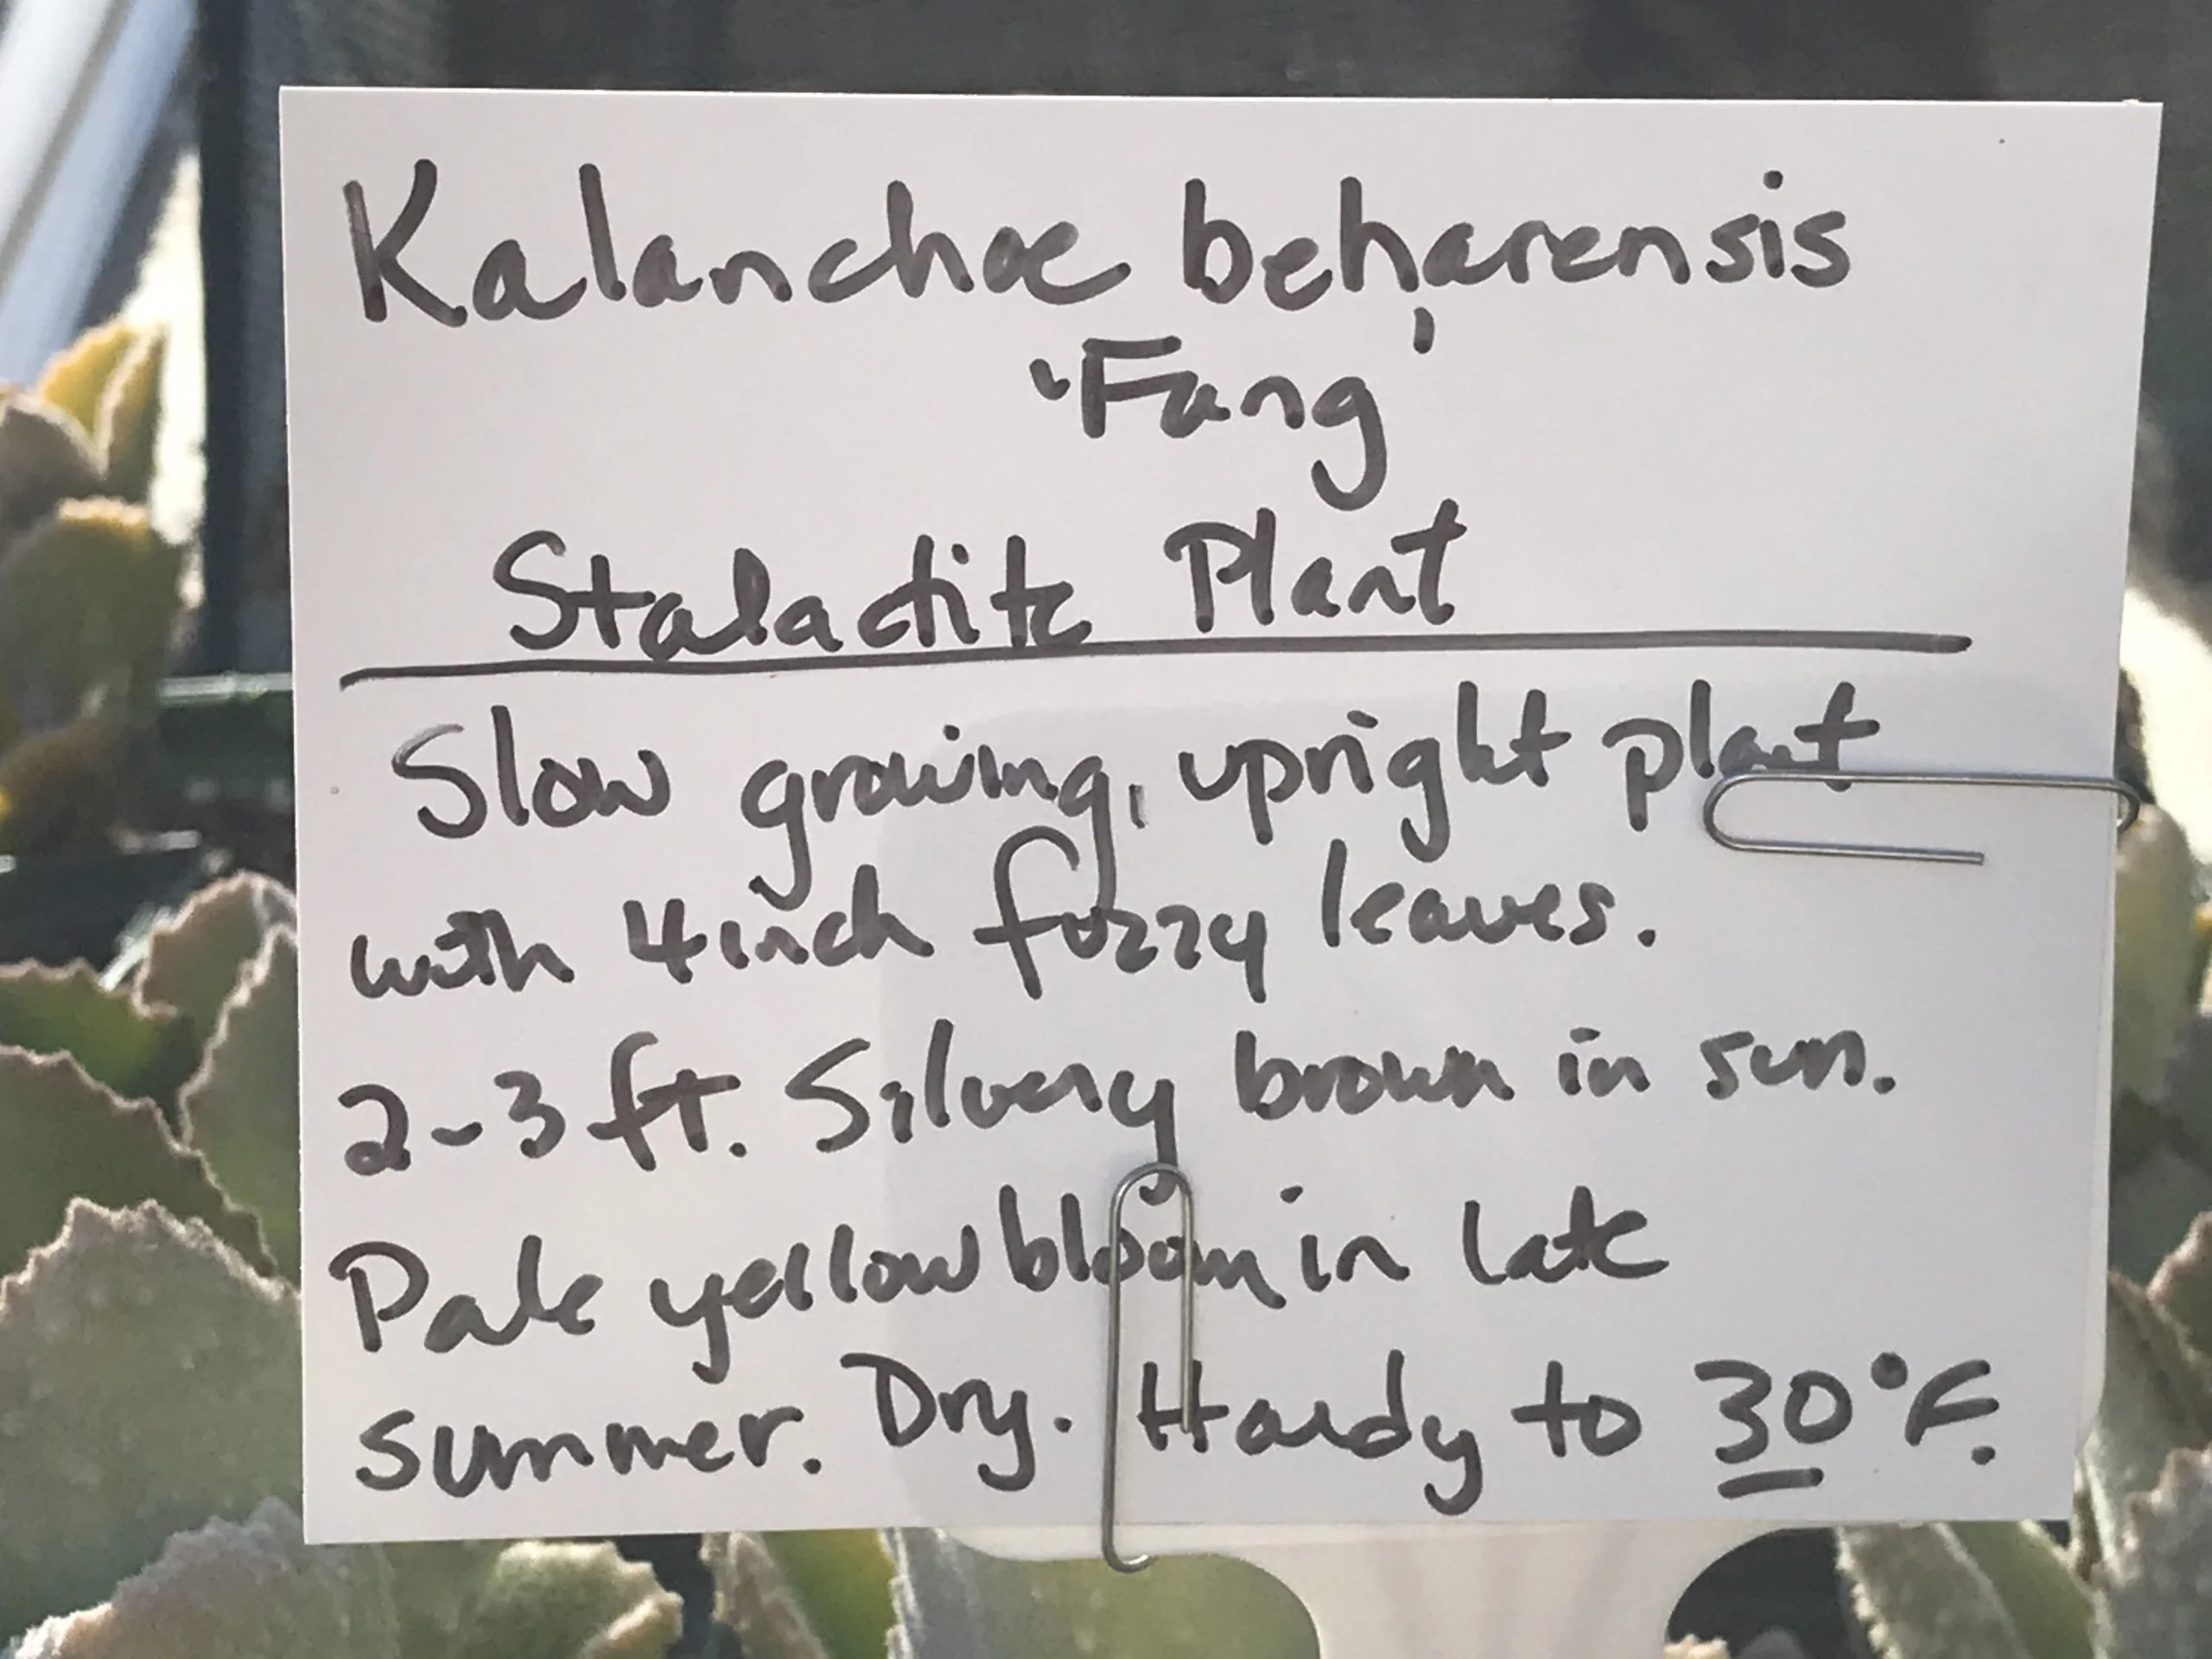 Kalanchoe beharensis
'Fang'
Stalactite Plant
Slow growing, upright plant
with 4 inch fuzzy leaves.
2-3 ft. Silvery brown in sun.
Pale yellow bloom in late
summer. Dry. Hardy to 30°F.